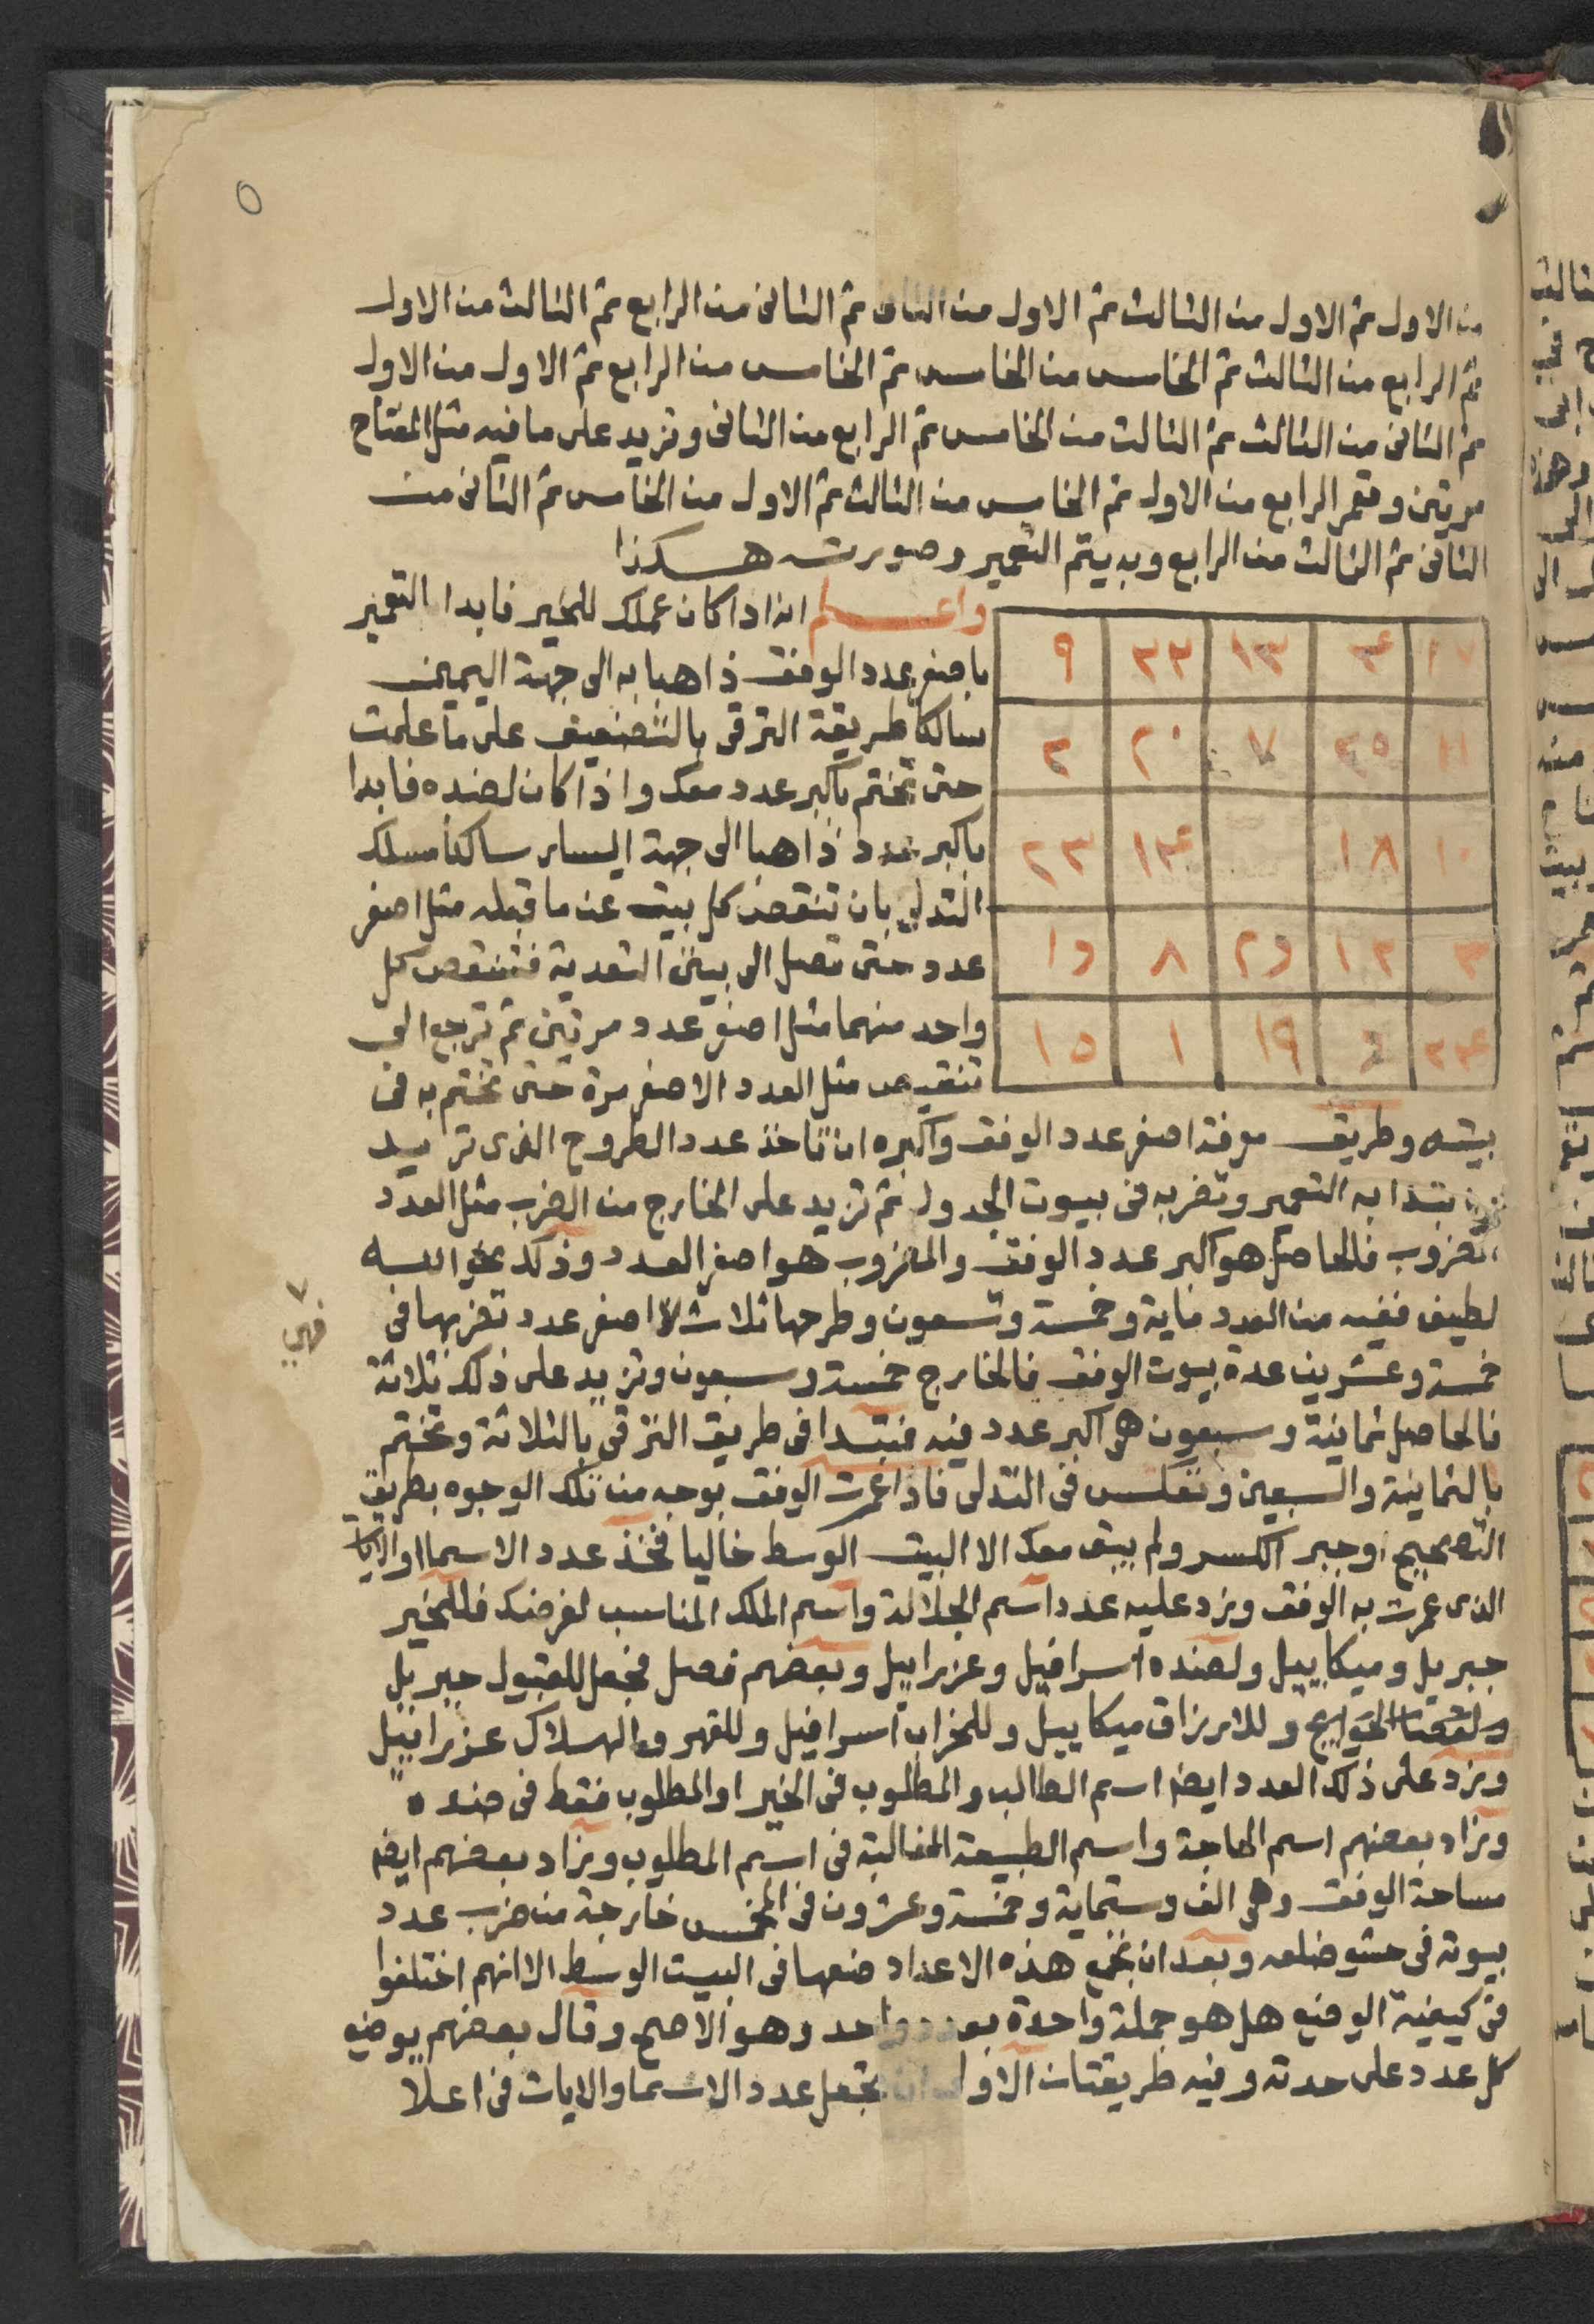 ٥
من الاول ثم الاول من الثالث ثم الاول من الثانى ثم الثانى من الرابع ثم الثالث من الاول
ثم الرابع من الثالث ثم الخامس من الخامس ثم الخامس من الرابع ثم الاول من الاول
ثم الثانى من الثالث ثم الثالث من الخامس ثم الرابع من الثانى وتزيد على ما فيه مثل المفتاح
مرتين وتعمر الرابع من الاول ثم الخامس من الثالث ثم الاول من الخامس ثم الثانى من
الثانى ثم الثالث من الرابع وبه يتم التعمير وصورته هكذا
واعلم انه اذا كان عملك للخير فابدا التعمير
باصغر عدد الوفق ذاهبا به الى جهة اليمين
سالكا طريقة الترقى بالتضعيف على ما علمت
حتى تختم باكبر عدد معك واذا كان لضده فابدا
باكبر عدد ذاهبا الى جهة اليسار سالكا مسلك
التدلى بان تنقص كل بيت عن ما قبله مثل اصغر
عدد حتى تصل الى بيتى التعدية فتنقص كل
واحد منهما مثل اصغر عدد مرتين ثم ترجع الى
تنقيص مثل العدد الاصغر مرة حتى تختم به فى
١٧ ٤ ١٣ ٢٢ ٩
١١ ٢٥ ٧ ٢٠ ٢
١٠ ١٨ ١٤ ٢٣
٣ ١٢ ٢٦ ٨ ١٦
٢٤ ٦ ١٩ ١ ١٥
بيته وطريق معرفة اصغر عدد الوفق واكبره ان تاخذ عدد المطروح الذى تريد
تبتدا به التعمير وتضربه فى بيوت الجدول ثم تزيد على الخارج من الضرب مثل العدد
المضروب فالحاصل هو اكبر عدد الوفق والمضروب هو اصغر العدد وذلك نحو الله
لطيف ففيه من العدد ماية وخمسة وتسعون وطرحها ثلاث اصغر عدد تضربها فى
فهى
خمسة وعشرين عدة بيوت الوفق فالخارج خمسة وسبعون وتزيد على ذلك ثلاثة
فالحاصل ثمانية وسبعون هى اكبر عدد فيه فتبتدا فى طريق الترقى بالثلاثة وتختم
بالثمانية والسبعين وتعكس فى التدلى فاذا عمرت الوفق بوجه من تلك الوجوه بطريق
التصحيح او جبر الكسر ولم يبق معك الا البيت الوسط خاليا فخذ عدد الاسما او الايات
الذى عمرت به الوفق وزد عليه عدد اسم الجلالة واسم الملك المناسب لغرضك فللخير
جبريل وميكاييل ولضده اسرافيل وعزراييل وبعضهم فصل فجعل للقبول جبريل
ولقضا الحوايج وللارزاق ميكاييل وللخراب اسرافيل وللقهر والهلاك عزراييل
وزد على ذلك العدد ايضا اسم الطالب والمطلوب فى الخير او المطلوب فقط فى ضده
وزاد بعضهم اسم الحاجة واسم الطبيعة الغالبة فى اسم المطلوب وزاد بعضهم ايضا
مساحة الوفق وهى الف وستماية وخمسة وعشرون فى المخمس خارجة من ضرب عدد
بيوته فى حشو ضلعه وبعد ان تجمع هذه الاعداد ضعها فى البيت الوسط الا انهم اختلفوا
فى كيفية الوضع هل هو جملة واحدة بعدد واحد وهو الاصح وقال بعضهم يوضع
كل عدد على حدته وفيه طريقتان الاولى ان تجعل عدد الاسما والايات فى اعلا